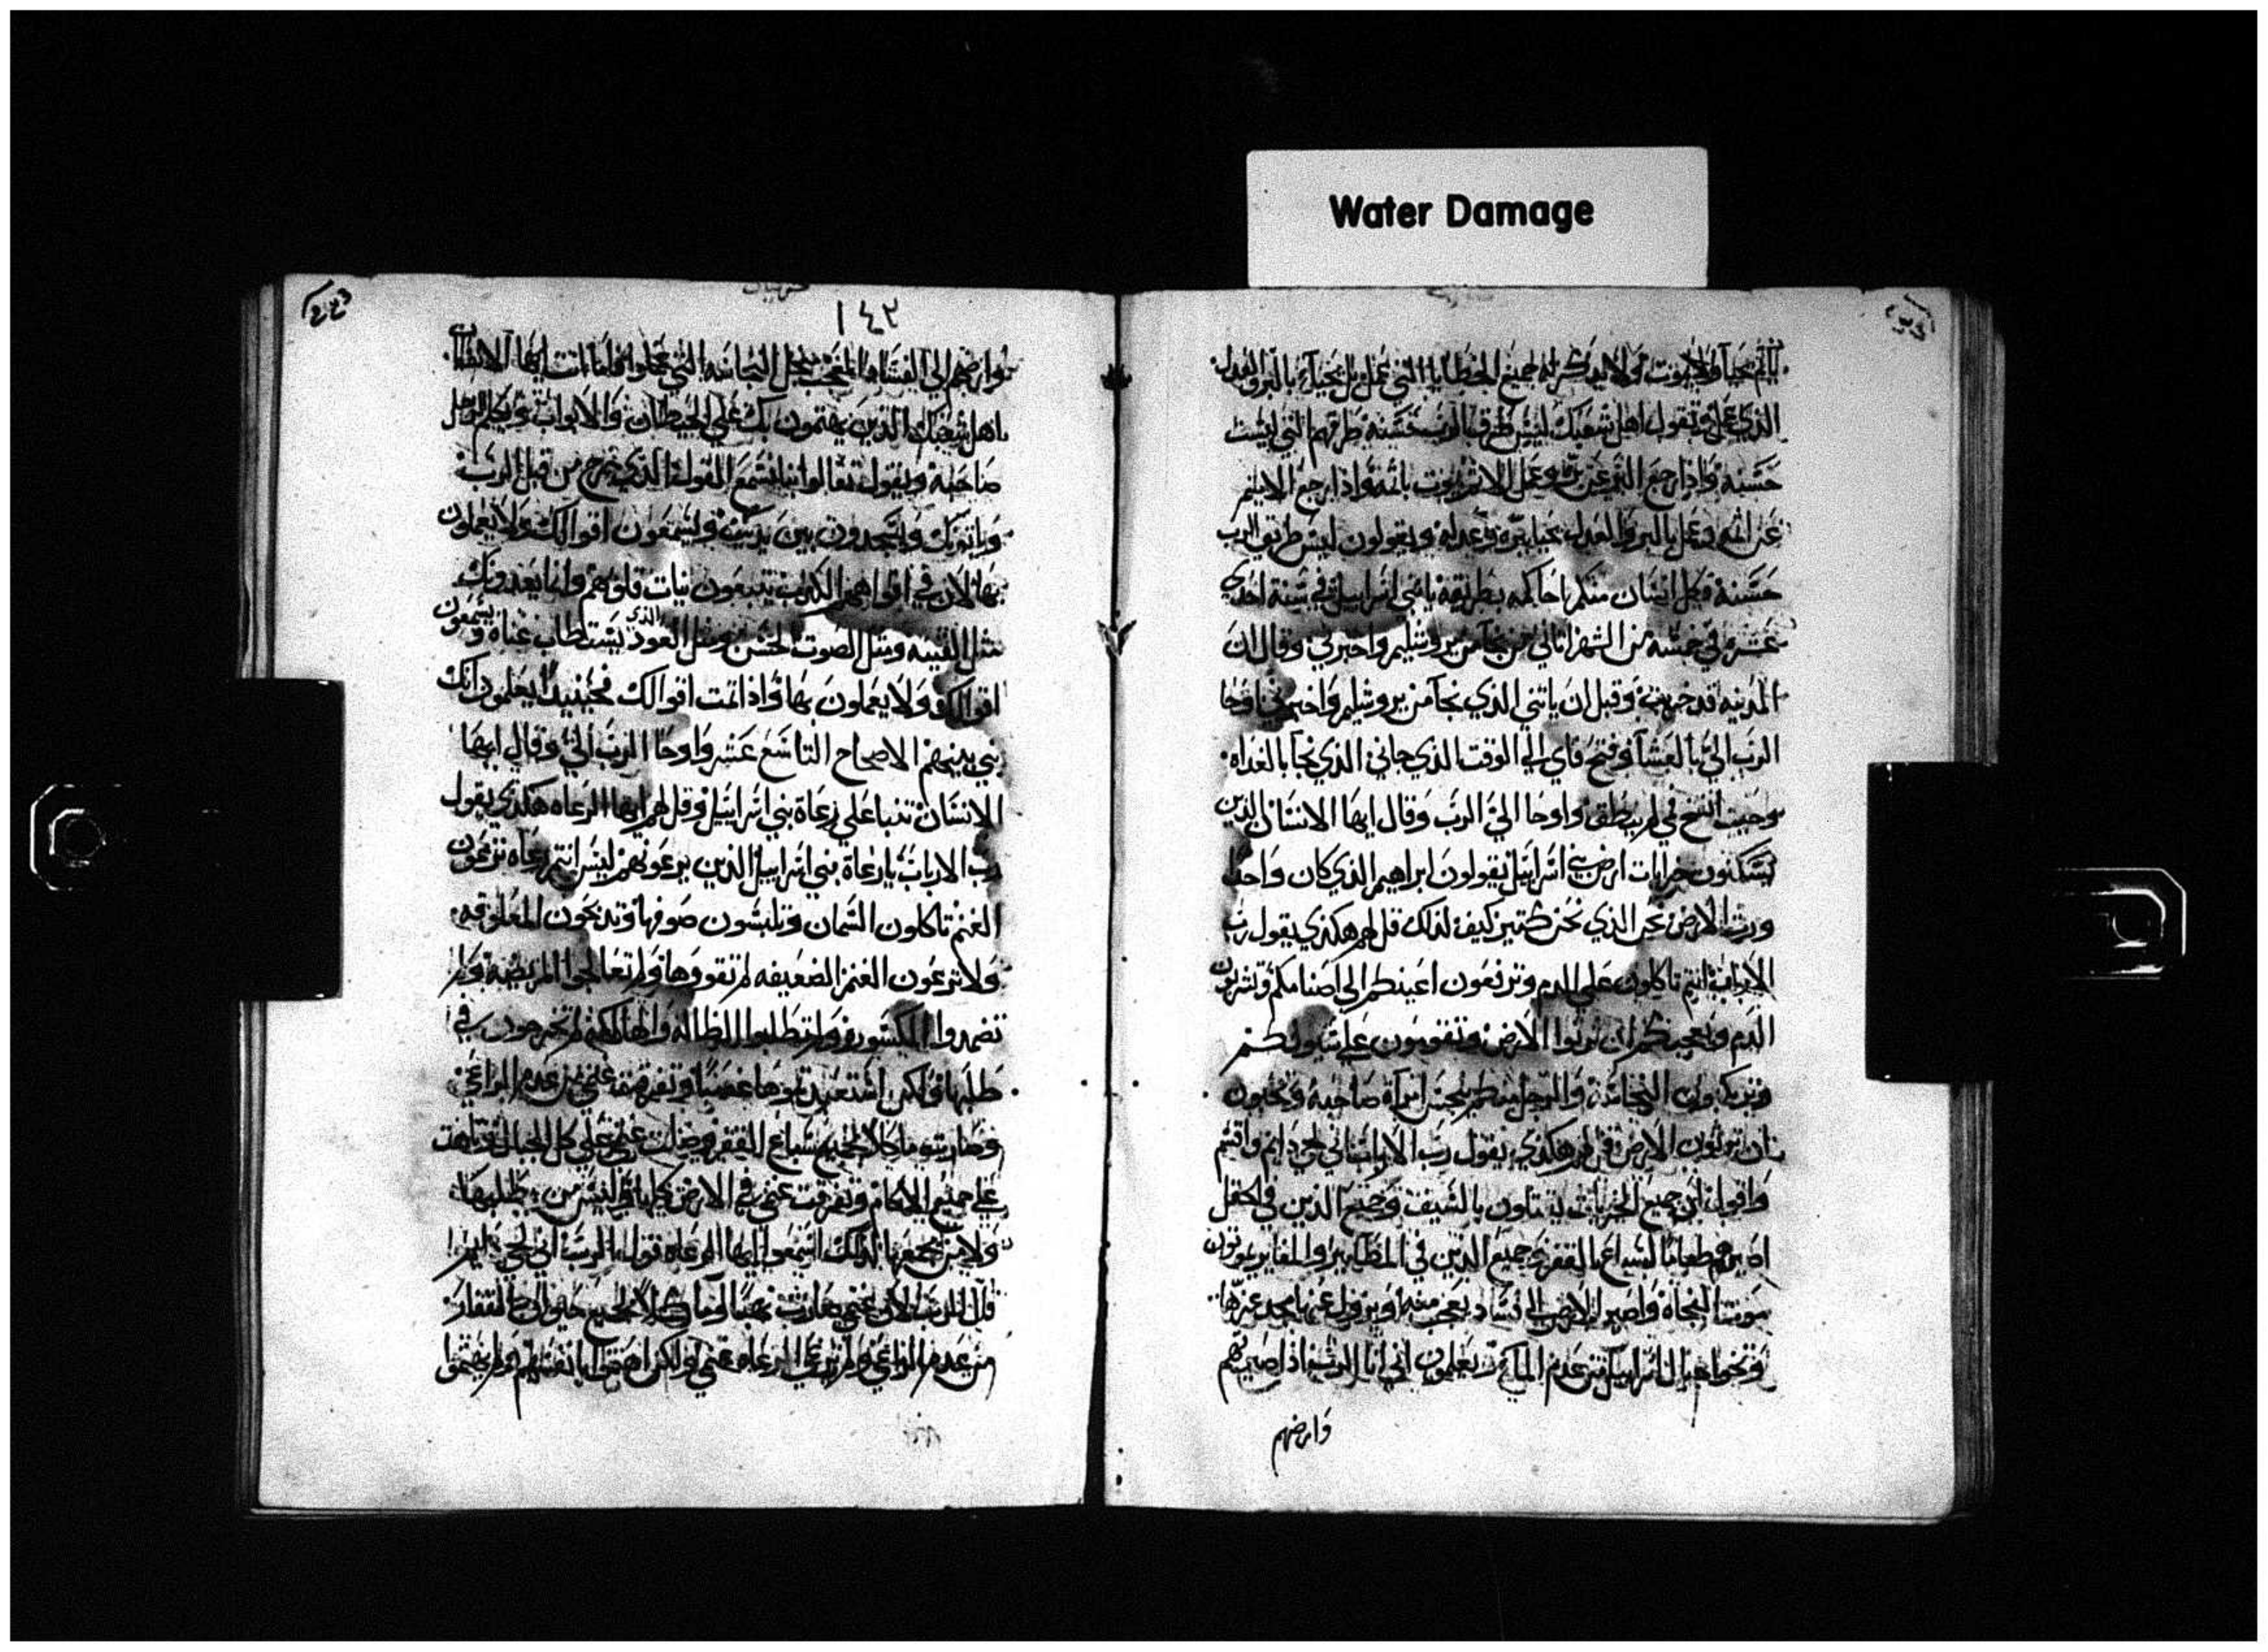 Water Damage
حياة ولا يموت ولا يذكر له جميع الخطايا التي عمل بل يحيا بالبر والعدل
الذي عمل وتقول اهل شعبك ليس طرق الرب حسنه طرقهم التي ليست
حسنه واذا رجع البر عن بره وعمل الاثم يموت باثمه واذا رجع الاثيم
عن اثمه وعمل بالبر والعدل يحيا ببره وعدله ويقولون ليس طريق الرب
حسنة فكل انسان منكم احاكمه بطريقه يا بني اسراييل في سنة احدي
عشره في خمسه من الشهر اتاني من نجا من يروشليم واخبرني وقال ان
المدينه قد خربت وقبل ان ياتني الذي نجا من يروشليم واخبرني اوحا
الرب الي بالعشا وفتح فاي الي الوقت الذي جاني الذي نجا بالغداه
وحيث انفتح في لم ينطق واوحا الي الرب وقال ايها الانسان الذين
يسكنون خرابات ارض اسراييل يقولون ابراهيم الذي كان واحدا
ورث الارض نحن الذي نحن كتير كيف لذلك قل لهم هكذي يقول رب
الارباب انتم تاكلون علي الدم وترفعون اعينكم الي اصنامكم وتشربون
الدم ويعجبكم ان ترثوا الارض وتقومون علي سيوفكم
وتركبون النجاسة والرجل منكم ينجس امراة صاحبه وتحلون
ان ترثون الارض قل لهم هكذي يقول رب الارباب اني حي دايم واقسم
واقول ان جميع الخربات يقتلون بالسيف وجميع الذين في الحقل
اصيرهم طعاما لسباع القفر وجميع الذين في المظاير والمغاير يموتون
موتتا الفجاه واصير الارض الي فساد يعجب منها ويزول عنها مجد عزها
وتخوا جبال اسراييل من عدم المارة يعلمون اني انا الرب اذا صيرتهم
وارضهم
١٤٢
وارضهم الي الفساد والتعجب من اجل النجاسه التي عملوا فاما انت ايها الانسان
اهل شعبك الذين يهتمون بك علي الحيطان والابواب ويكلم الرجل
صاحبه ويقول تعالوا بنا نسمع القول الذي خرج من قبل الرب
وياتونك ويسجدون بين يديك ويسمعون اقوالك ولا يعملون
بها لان في افواههم الكذب يتبعون نيات قلوبهم وانما يعدونك
مثل القينه ومثل الصوت الحسن ومثل العود الذي يستطاب غناه ويسمعون
اقوالك ولا يعملون بها واذا تمت اقوالك فحينيذ يعلمون انك
نبي بينهم الاصحاح التاسع عشر واوحا الرب الي وقال ايها
الانسان تنبا علي رعاة بني اسراييل وقل لهم ايها الرعاه هكذي يقول
رب الارباب يا رعاة بني اسراييل الذين يرعونهم ليس انتم رعاه ترعون
الغنم تاكلون السمان وتلبسون صوفها وتذبحون المعلوفه
ولا ترعون الغنم الضعيفه لم تقووها ولم تعالجوا المريضه ولم
تضمدوا المكسوره ولم تطلبوا الضاله والهالكه لم تخرجون في
طلبها ولكن استعبدتموها غصبا وتفرقت غنمي من عدم الراعي
وصارت ماكلا لجميع سباع القفر وضلت غنمي علي كل الجبال وتاهت
علي جميع الاكام وتفرقت غنمي في الارض كلها وليس من يطلبها
ولا من يجمعها لذلك اسمعوا ايها الرعاه قول الرب اني حي دايم
قال الرب لان غنمي صارت نهبا وماكلا لجميع حيوان القفار
من عدم الراعي ولم ترعي الرعاه غنمي ولكن اهتموا بانفسهم ولم يهتموا